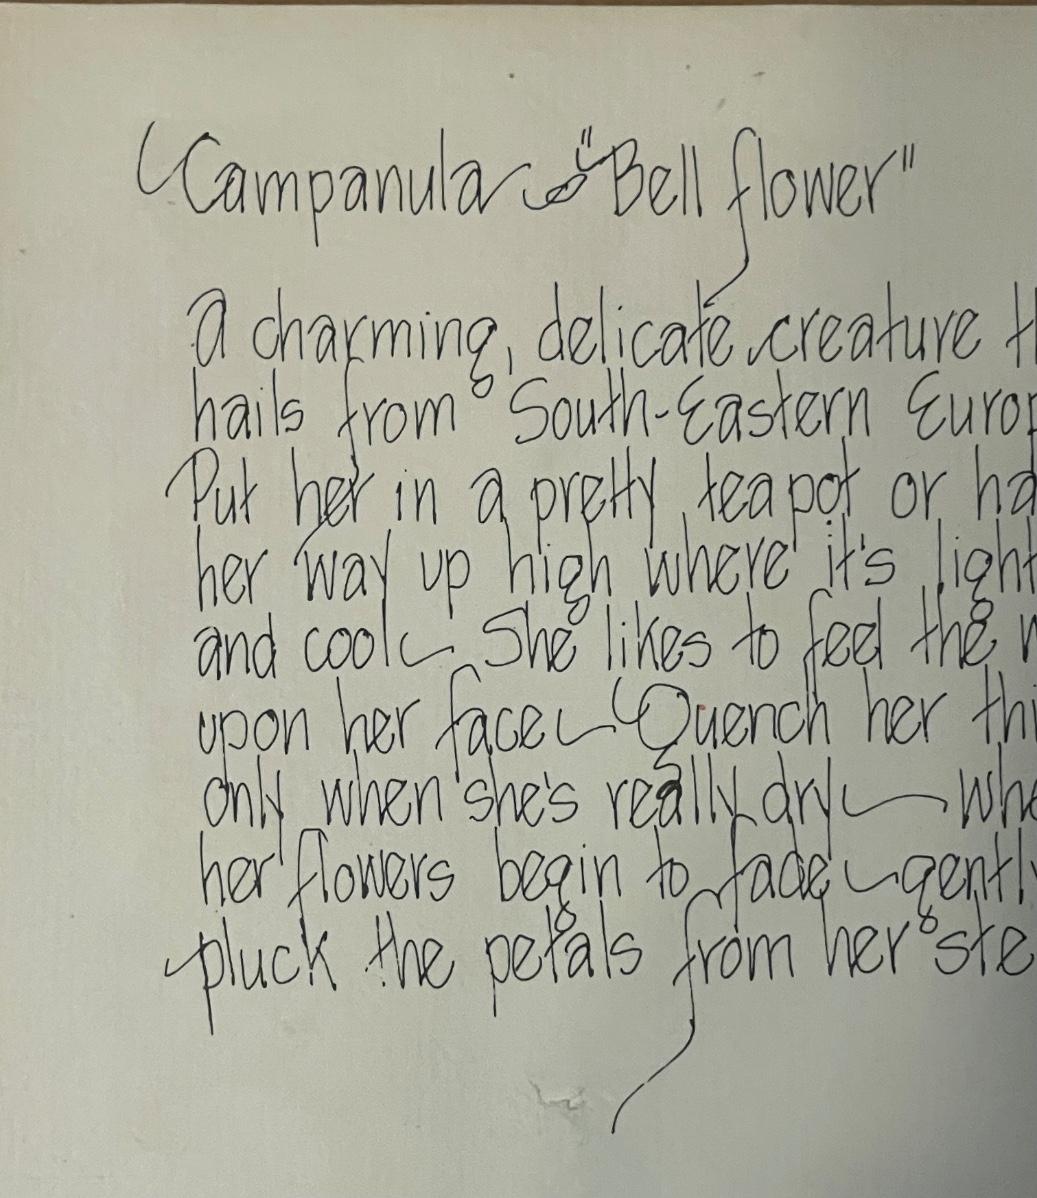 Campanula "Bell flower"
A charming, delicate creature
hails from South-Eastern
Put her in a pretty teapot or
her way up high where it's
and cool~ She likes to feel the
upon her face~ Quench her
only when she's really dry~
her flowers begin to fade~
pluck the petals from her